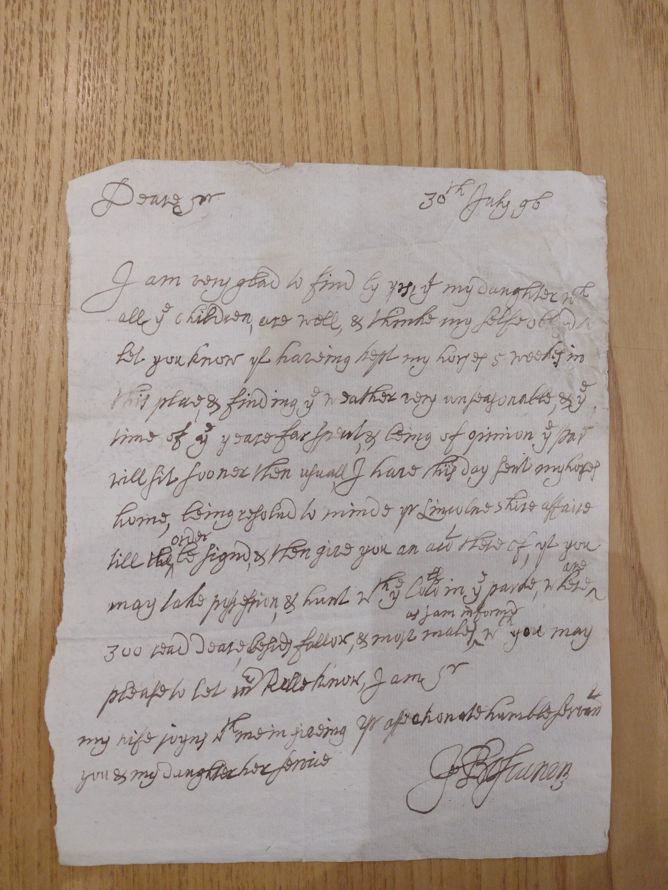 Deare Sr
30th July 96
I am very glad to find by yrs, yt my daughter wth
all ye children, are well, & thinke my selfe
let you know yt haveing kept my horses 5 weekes in
this place & finding ye weather very unseasonable, & ye
time of ye yeare far spent, & being of opinion ye
will sit sooner then usuall, I have this day sent my horses
home, being resolvd to minde yr Lincolneshire affaire
till the order be signd, & then give you an acct thereof, yt you
may take possession, & hunt wth ye in ye parke, where are
300 read deare, besides fallow, & most males, as I am informd wch you may
please to let mr know, I am Sr
my wife joyns wth me in giveing yr affectionate humble servant
you & my daughter her service